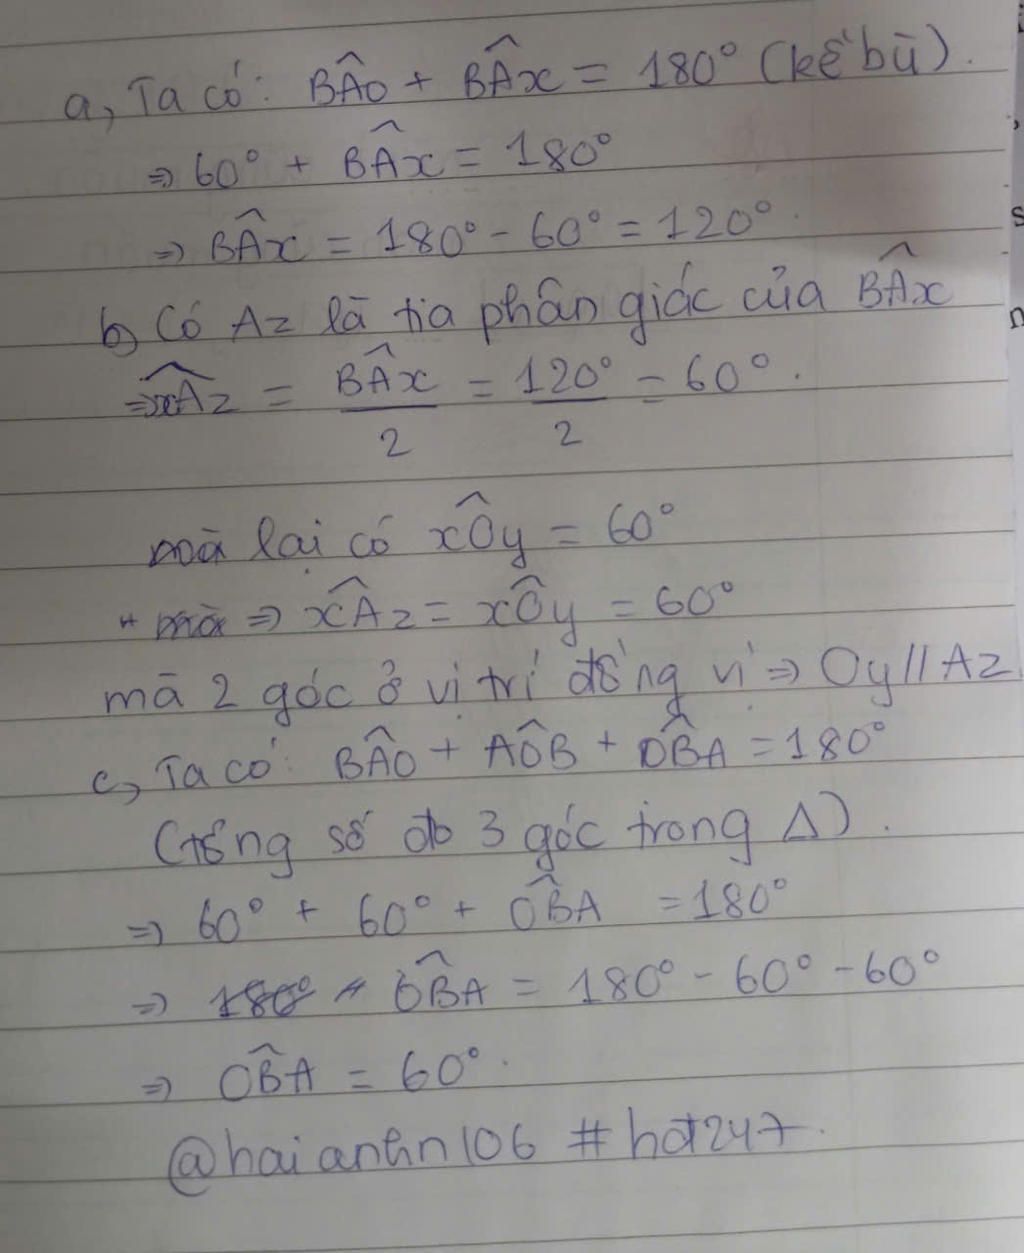 a, Ta có: BÂO + BÂx = 180° (kề bù).
⇒ 60° + BÂx = 180°
⇒ BÂx = 180° - 60° = 120°.
b, Có Az là tia phân giác của BÂx
⇒ xÂz = BÂx/2 = 120°/2 = 60°.
mà lại có xÔy = 60°
⇒ xÂz = xÔy = 60°
mà 2 góc ở vị trí đồng vị ⇒ Oy // Az
c, Ta có: BÂO + AÔB + OB̂A = 180°
(tổng số đo 3 góc trong Δ).
⇒ 60° + 60° + OB̂A = 180°
⇒ OB̂A = 180° - 60° - 60°
⇒ OB̂A = 60°.
@haianhn106 #hdt247.